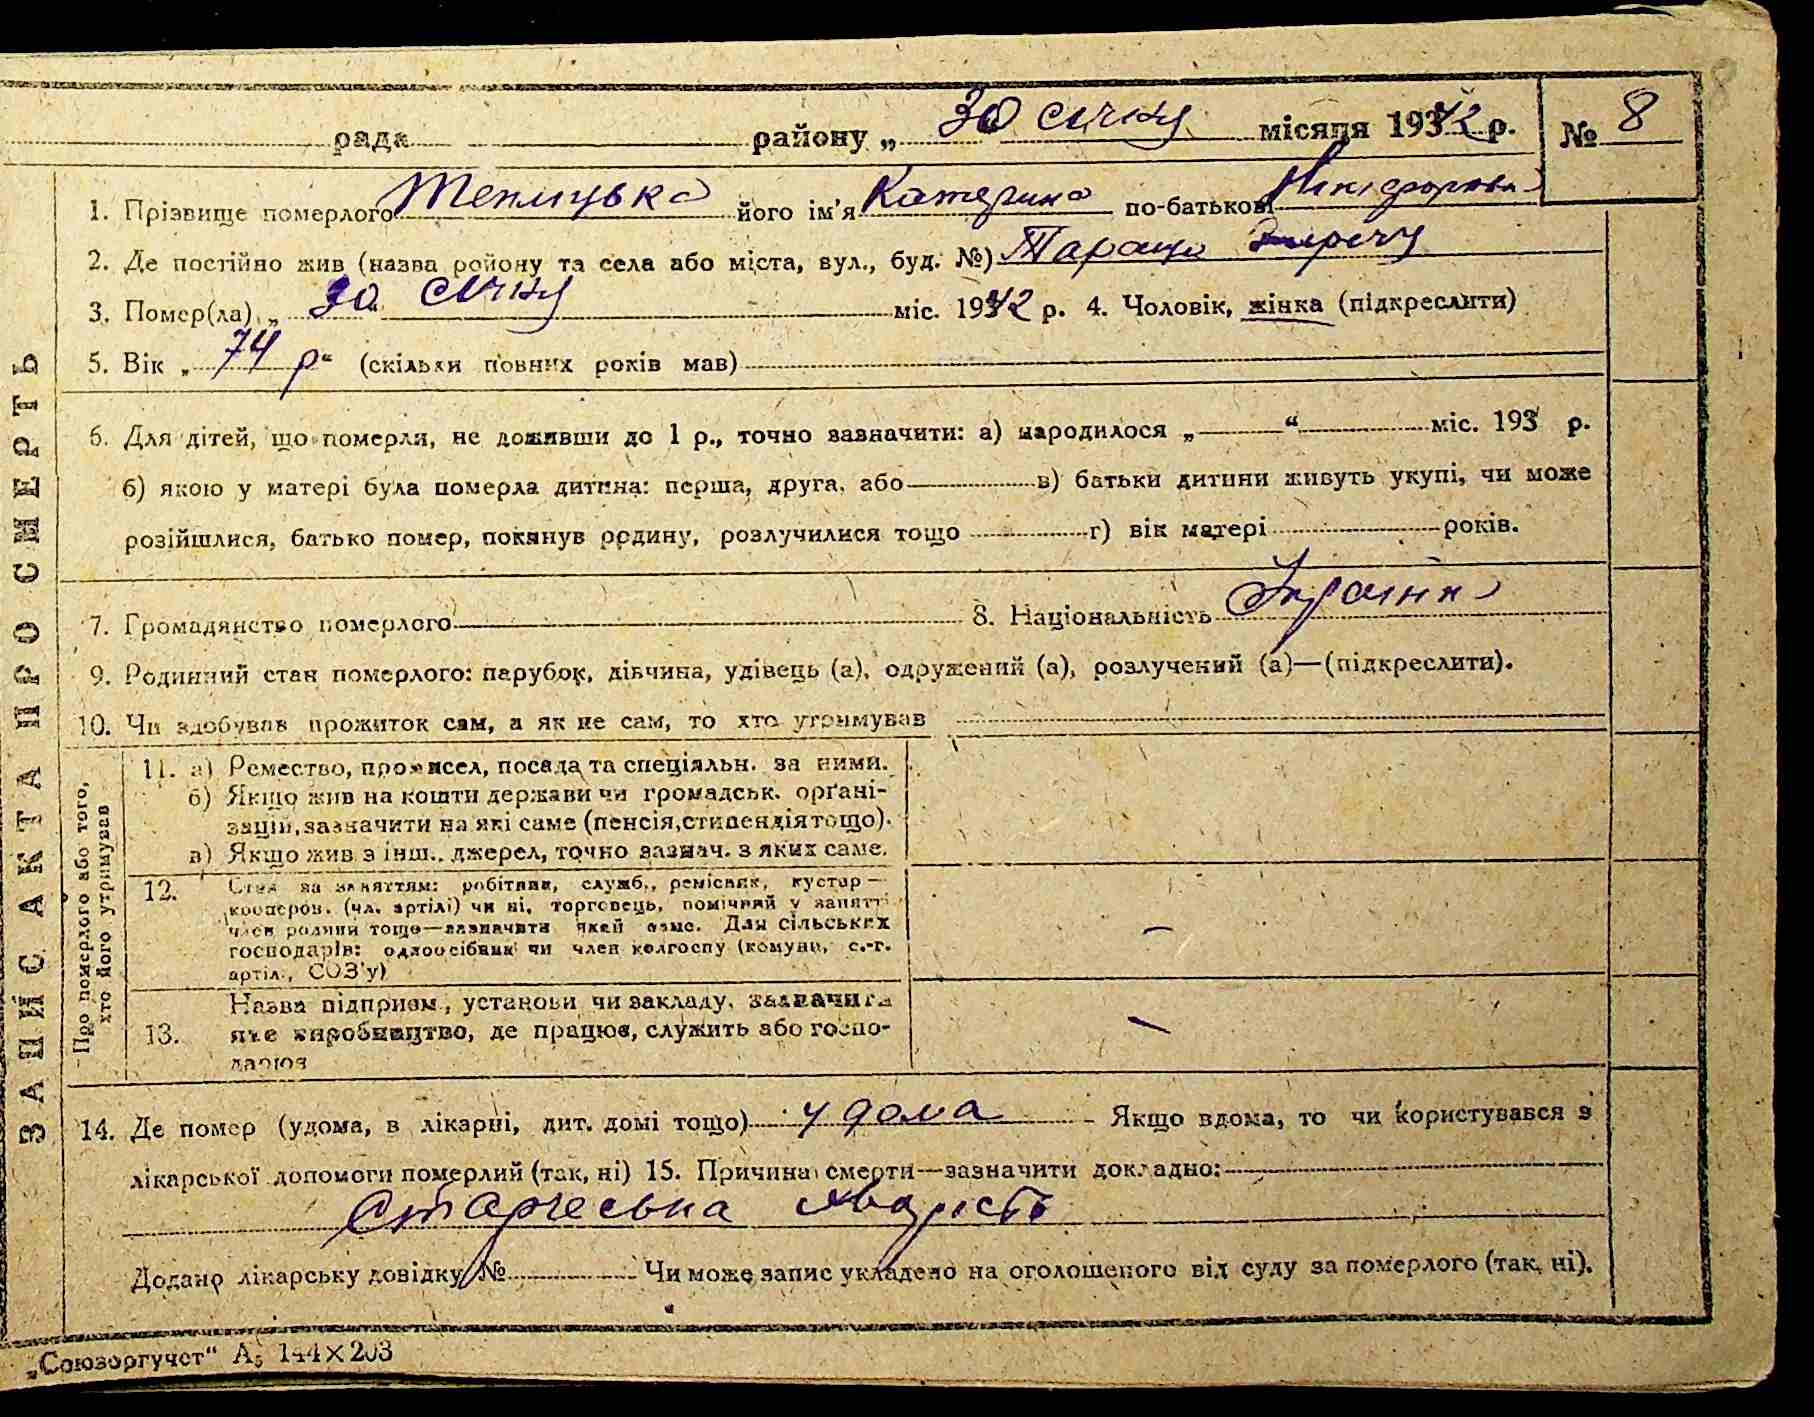 рада района „ 30 січня місяця 1942 р. № 8
1. Прізвище померлого Теплицька його ім'я Катерина по-батькові
2. Де постійно жив (назва району та села або міста, вул., буд. №) Тараща
3. Помер(ла) „ 30 " січня міс. 1942 р. 4. Чоловік, жінка (підкреслити)
5. Вік „ 74 р“ (скільки повних років мав)
6. Для дітей, що померли, не доживши до 1 р., точно зазначити: а) народилося „ “ міс. 193 р.
б) якою у матері була померла дитина: перша, друга, або в) батьки дитини живуть укупі, чи може
розійшлися, батько помер, покинув родину, розлучилися тощо г) вік матері років.
7. Громадянство померлого 8. Національність
9. Родинний стан померлого: парубок, дівчина, удівець (а), одружений (а), розлучений (а)—(підкреслити).
10. Чи здобував прожиток сам, а як не сам, то хто утримував
ЗАПИС АКТА ПРО СМЕРТЬ
Про померлого або того,
хто його утримував
11. а) Ремество, промисел, посада та спеціяльн. за ними.
б) Якщо жив на кошти держави чи громадськ. орґані-
зацій, зазначити на які саме (пенсія, стипендія тощо).
в) Якщо жив з інш. джерел, точно зазнач. з яких саме.
12. Стан за заняттям: робітник, служб., ремісник, кустар—
кооперов. (чл. артілі) чи ні, торговець, помічний у занятті
член родини тощо—зазначити який саме. Для сільських
господарів: одноосібник чи член колгоспу (комуни, с.-г.
артіл., СОЗ'у)
13. Назва підприєм., установи чи закладу, зазначити
яке виробництво, де працює, служить або госпо-
дарює
14. Де помер (удома, в лікарні, дит. домі тощо) удома Якщо вдома, то чи користувався з
лікарської допомоги померлий (так, ні) 15. Причина смерти—зазначити докладно:
Старческа
Додано лікарську довідку № Чи може запис укладено на оголошеного від суду за померлого (так, ні).
„Союзоргучет“ А5 144×203